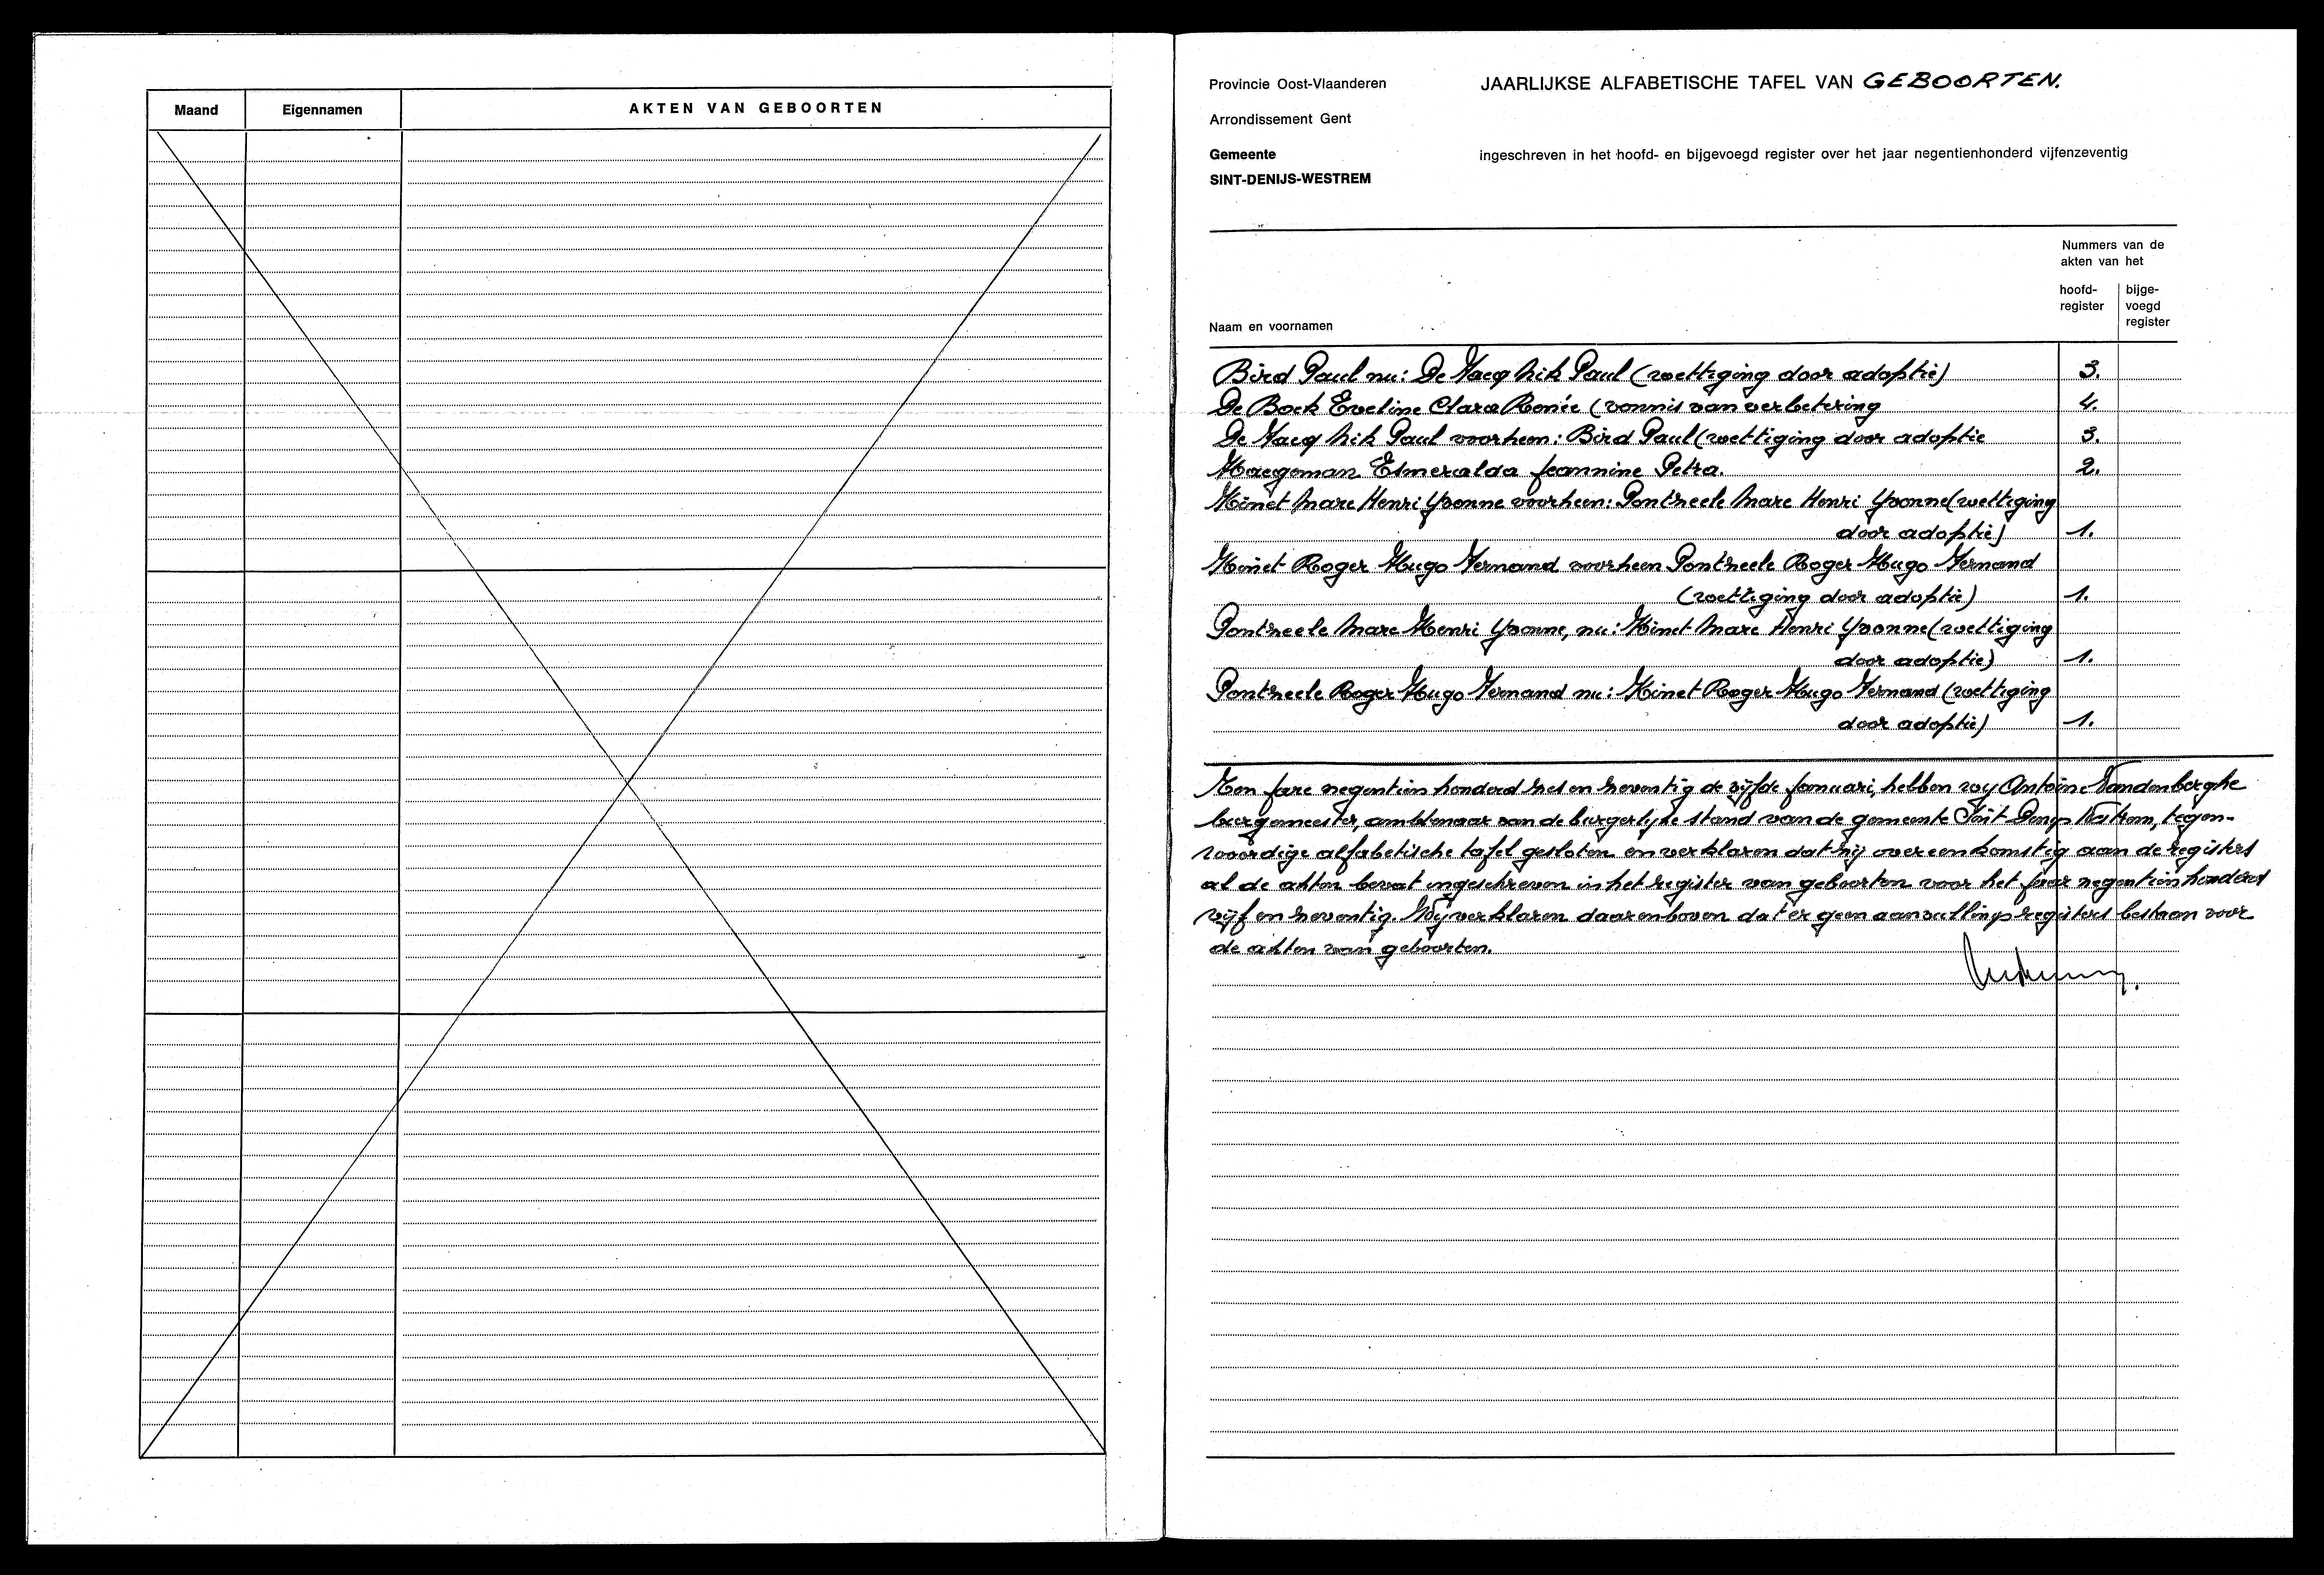 Maand Eigennamen AKTEN VAN GEBOORTEN
Provincie Oost-Vlaanderen
JAARLIJKSE ALFABETISCHE TAFEL VAN GEBOORTEN.
Arrondissement Gent
Gemeente
SINT-DENIJS-WESTREM
ingeschreven in het hoofd- en bijgevoegd register over het jaar negentienhonderd vijfenzeventig
Nummers van de
akten van het
hoofd-
register
bijge-
voegd
register
Naam en voornamen
Bird Paul nu: De Paul (wettiging door adoptie) 3.
De Bock Eveline Clara Renée (vonnis van verbetering 4.
De Paul voorheen: Bird Paul (wettiging door adoptie 3.
Haegeman Esmeralda Jeannine Petra. 2.
Minet Marc Henri Yvonne voorheen: Pontzeele Marc Henri Yvonne (wettiging
door adoptie) 1.
Minet Roger Hugo Fernand voorheen Pontzeele Roger Hugo Fernand
(wettiging door adoptie) 1.
Pontzeele Marc Henri Yvonne, nu: Minet Marc Henri Yvonne (wettiging
door adoptie) 1.
Pontzeele Roger Hugo Fernand nu: Minet Roger Hugo Fernand (wettiging
door adoptie) 1.
Ten jare negentien honderd zes en zeventig de vijfde januari, hebben wij Antoine Vandenberghe
burgemeester, ambtenaar van de burgerlijke stand van de gemeente Sint Denijs Westrem, tegen-
woordige alfabetische tafel gesloten en verklaren dat hij overeenkomstig aan de registers
al de akten bevat ingeschreven in het register van geboorten voor het jaar negentien honderd
vijf en zeventig. Wij verklaren daarenboven dat er geen aanvullingsregisters bestaan voor
de akten van geboorten.